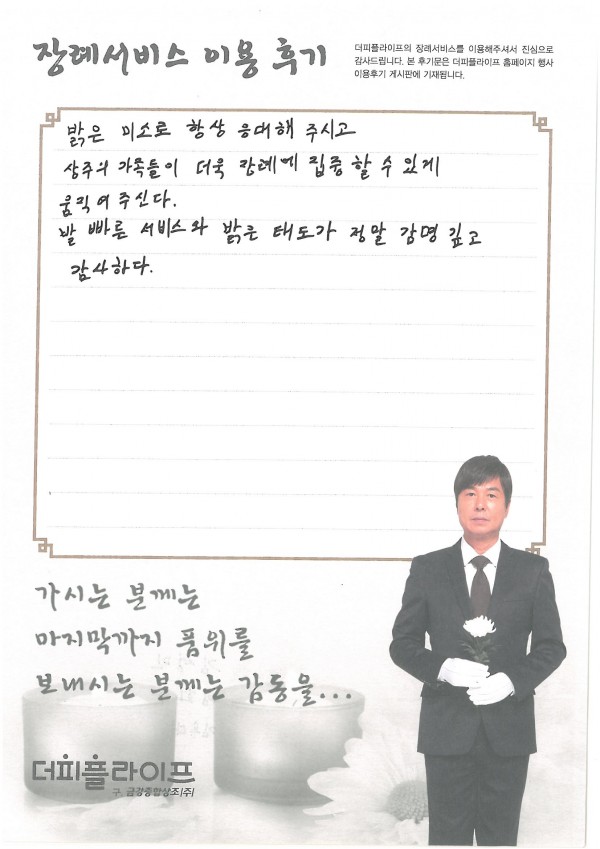 장례서비스 이용 후기
더피플라이프의 장례서비스를 이용해주셔서 진심으로
감사드립니다. 본 후기문은 더피플라이프 홈페이지 행사
이용후기 게시판에 기재됩니다.
밝은 미소로 항상 응대해 주시고
상주의 가족들이 더욱 장례에 집중할 수 있게
움직여 주신다.
발 빠른 서비스와 밝은 태도가 정말 감명 깊고
감사하다.
가시는 분께는
마지막까지 품위를
보내시는 분께는 감동을...
더피플라이프
구. 금강종합상조(주)